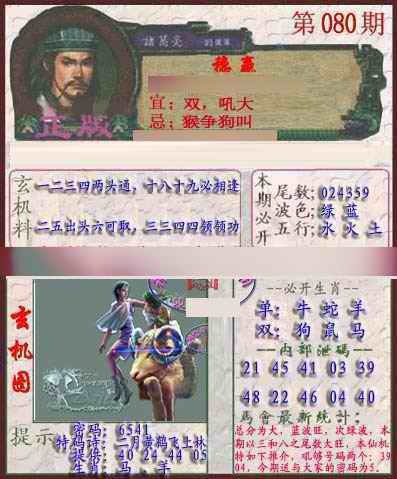 第080期
諸葛亮
穩贏
宜：双，吼大
忌：猴争狗叫
正版
玄机料
一二三四两头通，十八十九必相逢
二五出头六可取，三三四四领领功
本期必开
尾数；024359
波色；绿 蓝
五行；水 火 土
玄机图
--必开生肖--
单：牛 蛇 羊
双：狗 鼠 马
--内部泄码--
21 45 41 03 39
48 22 46 04 40
馬會最新統计：
总分为大，蓝波旺，次绿波，本
期以三和八之尾数大旺，本仙机
特如下推介，吼够号码两个：39
04，今期送与大家的密码为5.
提示
密码：6541
特码诗：二月黄鹤飞上林
提倍：40 24 44 05
生肖：马、羊